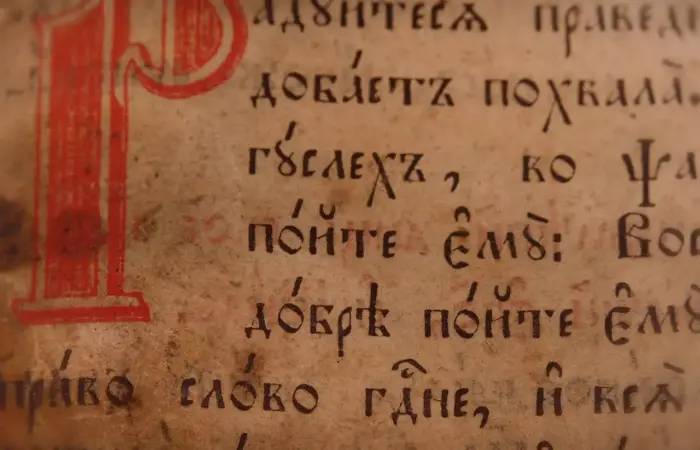 Радꙋйтесѧ праведн
доба́етъ похвала̀.
гꙋ́слехъ, во ѱа
по́йте є҆мꙋ̀: Вос
до́брѣ по́йте є҆мꙋ̀
пра́во сло́во гдⷭ҇не, и҆ всѧ̀